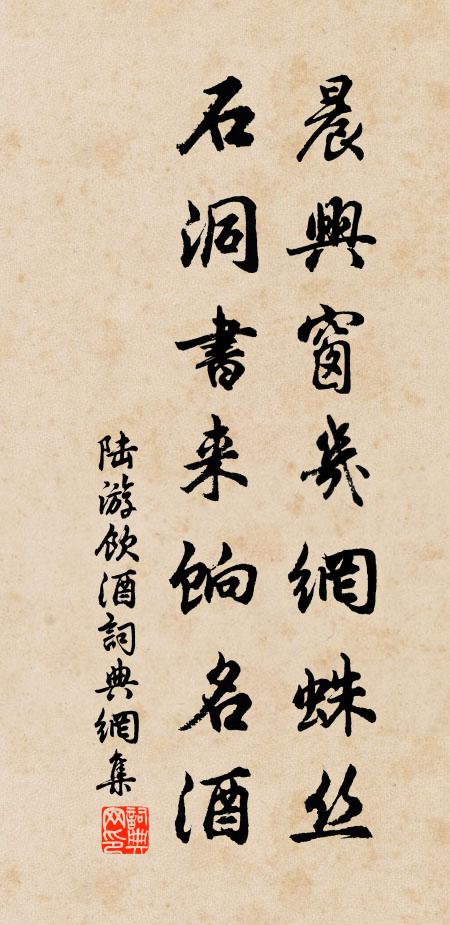 晨興窗几網蛛丝
石洞書来餉名酒
陆游飲酒詞典網集
詞典网印